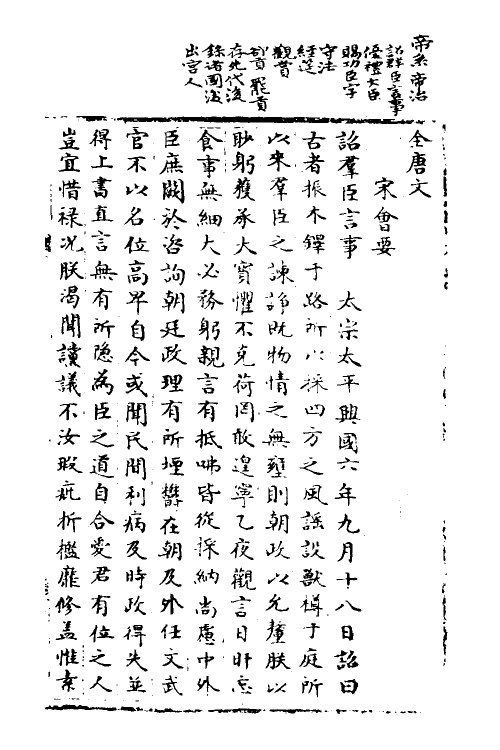 帝系 帝治
詔群臣言事
優禮大臣
賜功臣字
守法
經筵
觀賞
却貢 罷貢
存先代後
錄諸國後
出宮人
全唐文
宋會要
詔羣臣言事 太宗太平興國六年九月十八日詔曰
古者振木鐸于路所以採四方之風謠設獸樽于庭所
以來羣臣之諫諍既物情之無壅則朝政以允釐朕以
眇躬獲承大寶懼不克荷罔敢遑寧乙夜觀言日旰忘
食事無細大必務躬親言有抵咈皆從採納尚慮中外
臣庶闕於咨詢朝廷政理有所堙欝在朝及外任文武
官不以名位高卑自今或聞民間利病及時政得失並
得上書直言無有所隐為臣之道自合愛君有位之人
豈宜惜祿况朕渴聞讜議不汝瑕疵折檻靡修盖惟素